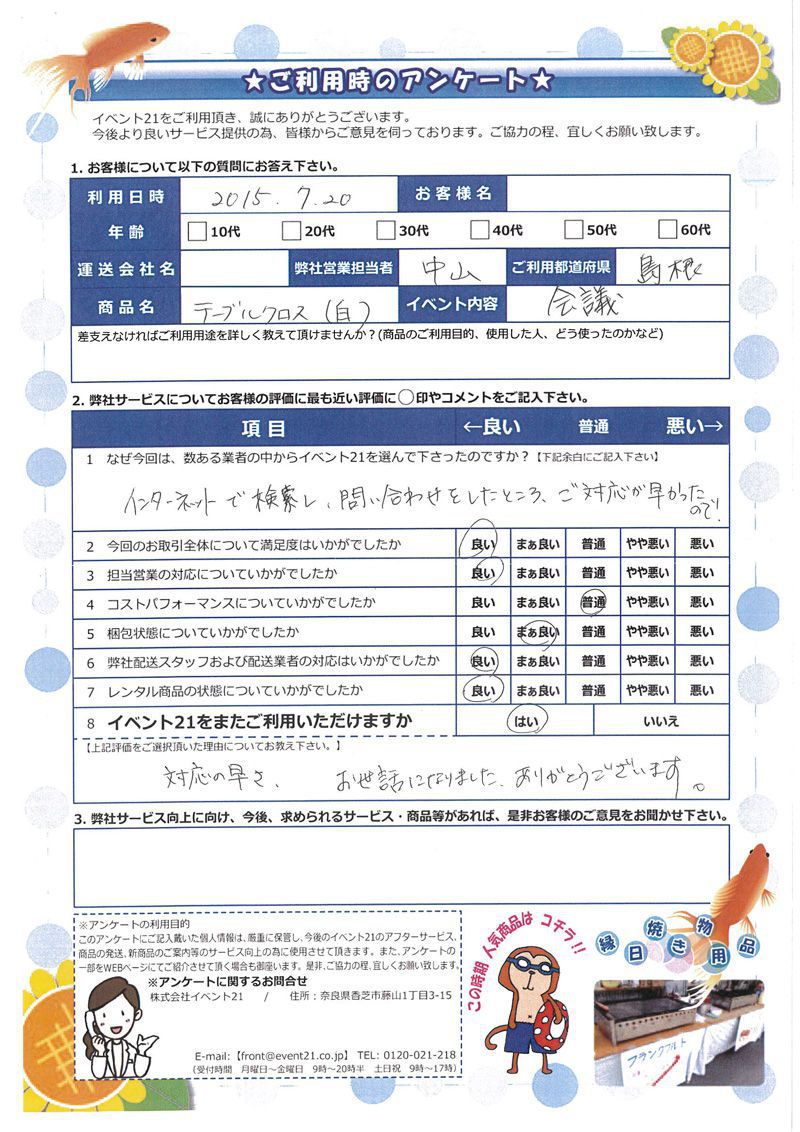 ★ご利用時のアンケート★
イベント21をご利用頂き、誠にありがとうございます。
今後より良いサービス提供の為、皆様からご意見を伺っております。ご協力の程、宜しくお願い致します。
1. お客様について以下の質問にお答え下さい。
利用日時 2015.7.20 お客様名
年齢 10代 20代 30代 40代 50代 60代
運送会社名 弊社営業担当者 中山 ご利用都道府県 島根
商品名 テーブルクロス(白) イベント内容 会議
差支えなければご利用用途を詳しく教えて頂けませんか?(商品のご利用目的、使用した人、どう使ったのかなど)
2. 弊社サービスについてお客様の評価に最も近い評価に○印やコメントをご記入下さい。
項目 ←良い 普通 悪い→
1 なぜ今回は、数ある業者の中からイベント21を選んで下さったのですか?【下記余白にご記入下さい】
インターネットで検索し、問い合わせをしたところ、ご対応が早かった
ので!
2 今回のお取引全体について満足度はいかがでしたか 良い まぁ良い 普通 やや悪い 悪い
3 担当営業の対応についていかがでしたか 良い まぁ良い 普通 やや悪い 悪い
4 コストパフォーマンスについていかがでしたか 良い まぁ良い 普通 やや悪い 悪い
5 梱包状態についていかがでしたか 良い まぁ良い 普通 やや悪い 悪い
6 弊社配送スタッフおよび配送業者の対応はいかがでしたか 良い まぁ良い 普通 やや悪い 悪い
7 レンタル商品の状態についていかがでしたか 良い まぁ良い 普通 やや悪い 悪い
8 イベント21をまたご利用いただけますか はい いいえ
【上記評価をご選択頂いた理由についてお教え下さい。】
対応の早さ、 お世話になりました、ありがとうございます。
3. 弊社サービス向上に向け、今後、求められるサービス・商品等があれば、是非お客様のご意見をお聞かせ下さい。
※アンケートの利用目的
このアンケートにご記入戴いた個人情報は、厳重に保管し、今後のイベント21のアフターサービス、
商品の発送、新商品のご案内等のサービス向上の為に使用させて頂きます。また、アンケートの
一部をWEBページにてご紹介させて頂く場合も御座います。是非、ご協力の程、宜しくお願い致します。
※アンケートに関するお問合せ
株式会社イベント21 / 住所:奈良県香芝市藤山1丁目3-15
E-mail:【front@event21.co.jp】 TEL: 0120-021-218
(受付時間 月曜日~金曜日 9時~20時半 土日祝 9時~17時)
この時期 人気商品は コチラ!!
縁日焼き物用品
フランクフルト